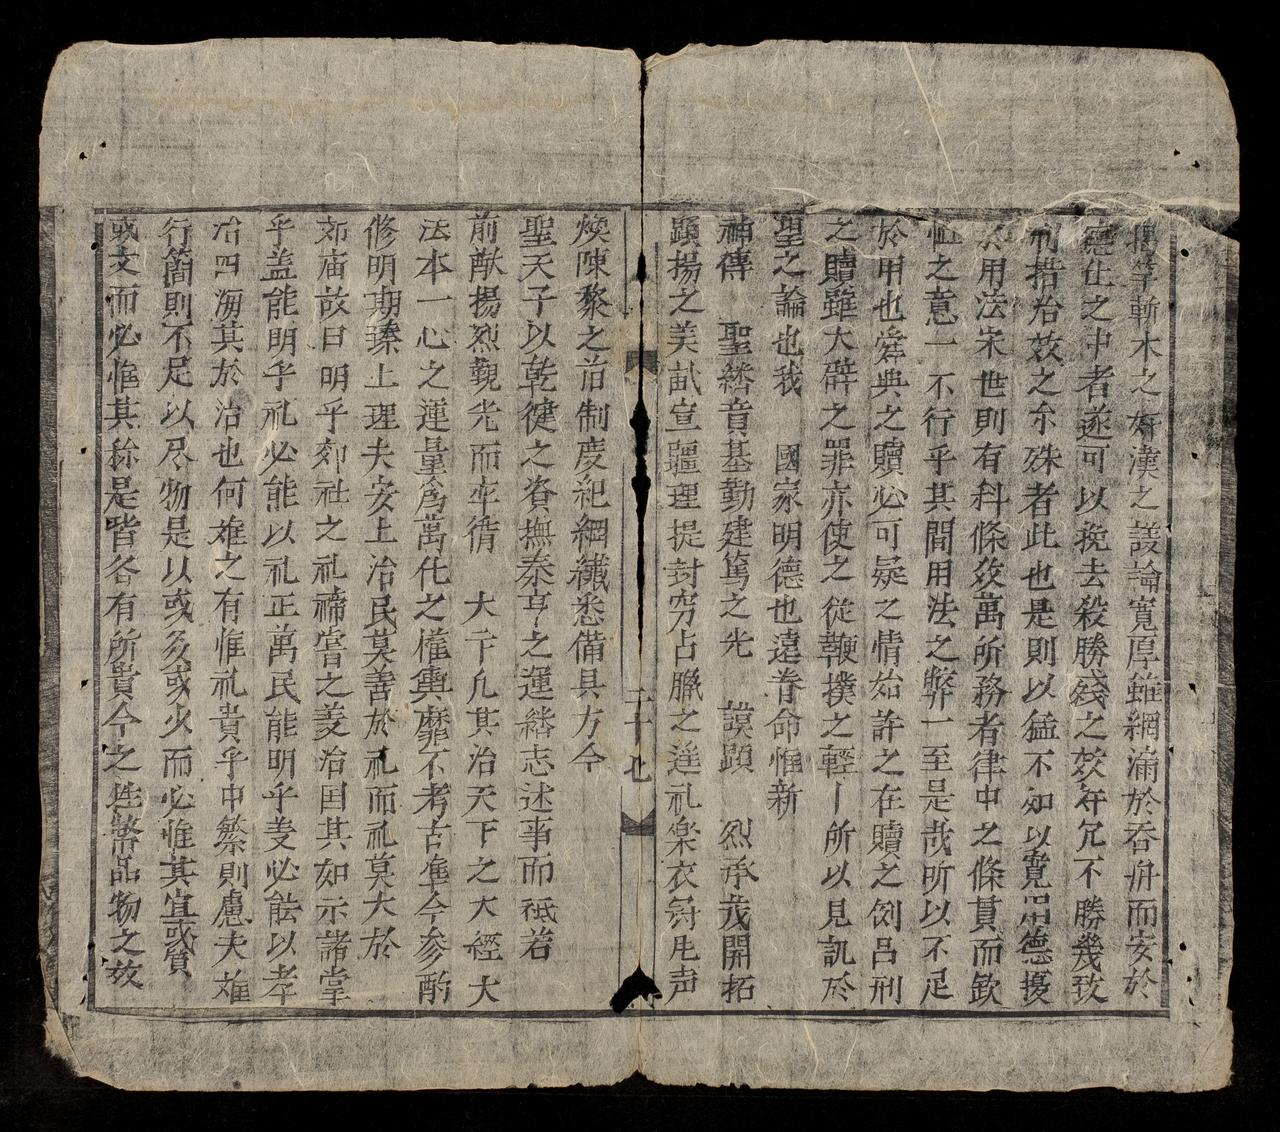 斬木之奸漢之議論寬厚雖網漏於吞舟而安於
德化之中者遂可以挽去殺勝殘之效奸宄不勝幾致
刑措治效之尒殊者此也是則以猛不如以寬用德擾
於用法宋世則有科條效萬所務者律中之條貫而欽
恤之意一不行乎其間用法之弊一至是哉所以不足
於用也舜典之贖必可疑之情始許之在贖之例吕刑
之贖雖大辟之罪亦使之從鞭撲之輕丨所以見訊於
聖之論也我　國家明德也遠眷命惟新
神傳　聖緒音基勤建篤之光　謨顯　烈承茂開拓
顕揚之美訧宣疆理提封穷占臘之逹礼楽衣冠𡉼声
二十七
煥陳黎之治制度紀綱纖悉備具方今
聖天子以乾健之資撫泰亨之運緒志述事而祗若
前猷揚烈覲光而率循　大卞凢其治天下之大經大
法本一心之運量為萬化之權輿靡不考古凖今参酌
修明期臻上理夫安上治民莫善於礼而礼莫大於
郊庙故曰明乎郊社之礼禘嘗之義治囯其如示諸掌
乎盖能明乎礼必能以礼正萬民能明乎義必能以孝
治四海其於治也何难之有惟礼貴乎中繁則慮夫难
行簡則不足以尽物是以或多或少而必惟其宜或質
或文而必惟其称是皆各有所貴今之牲幣品物之效